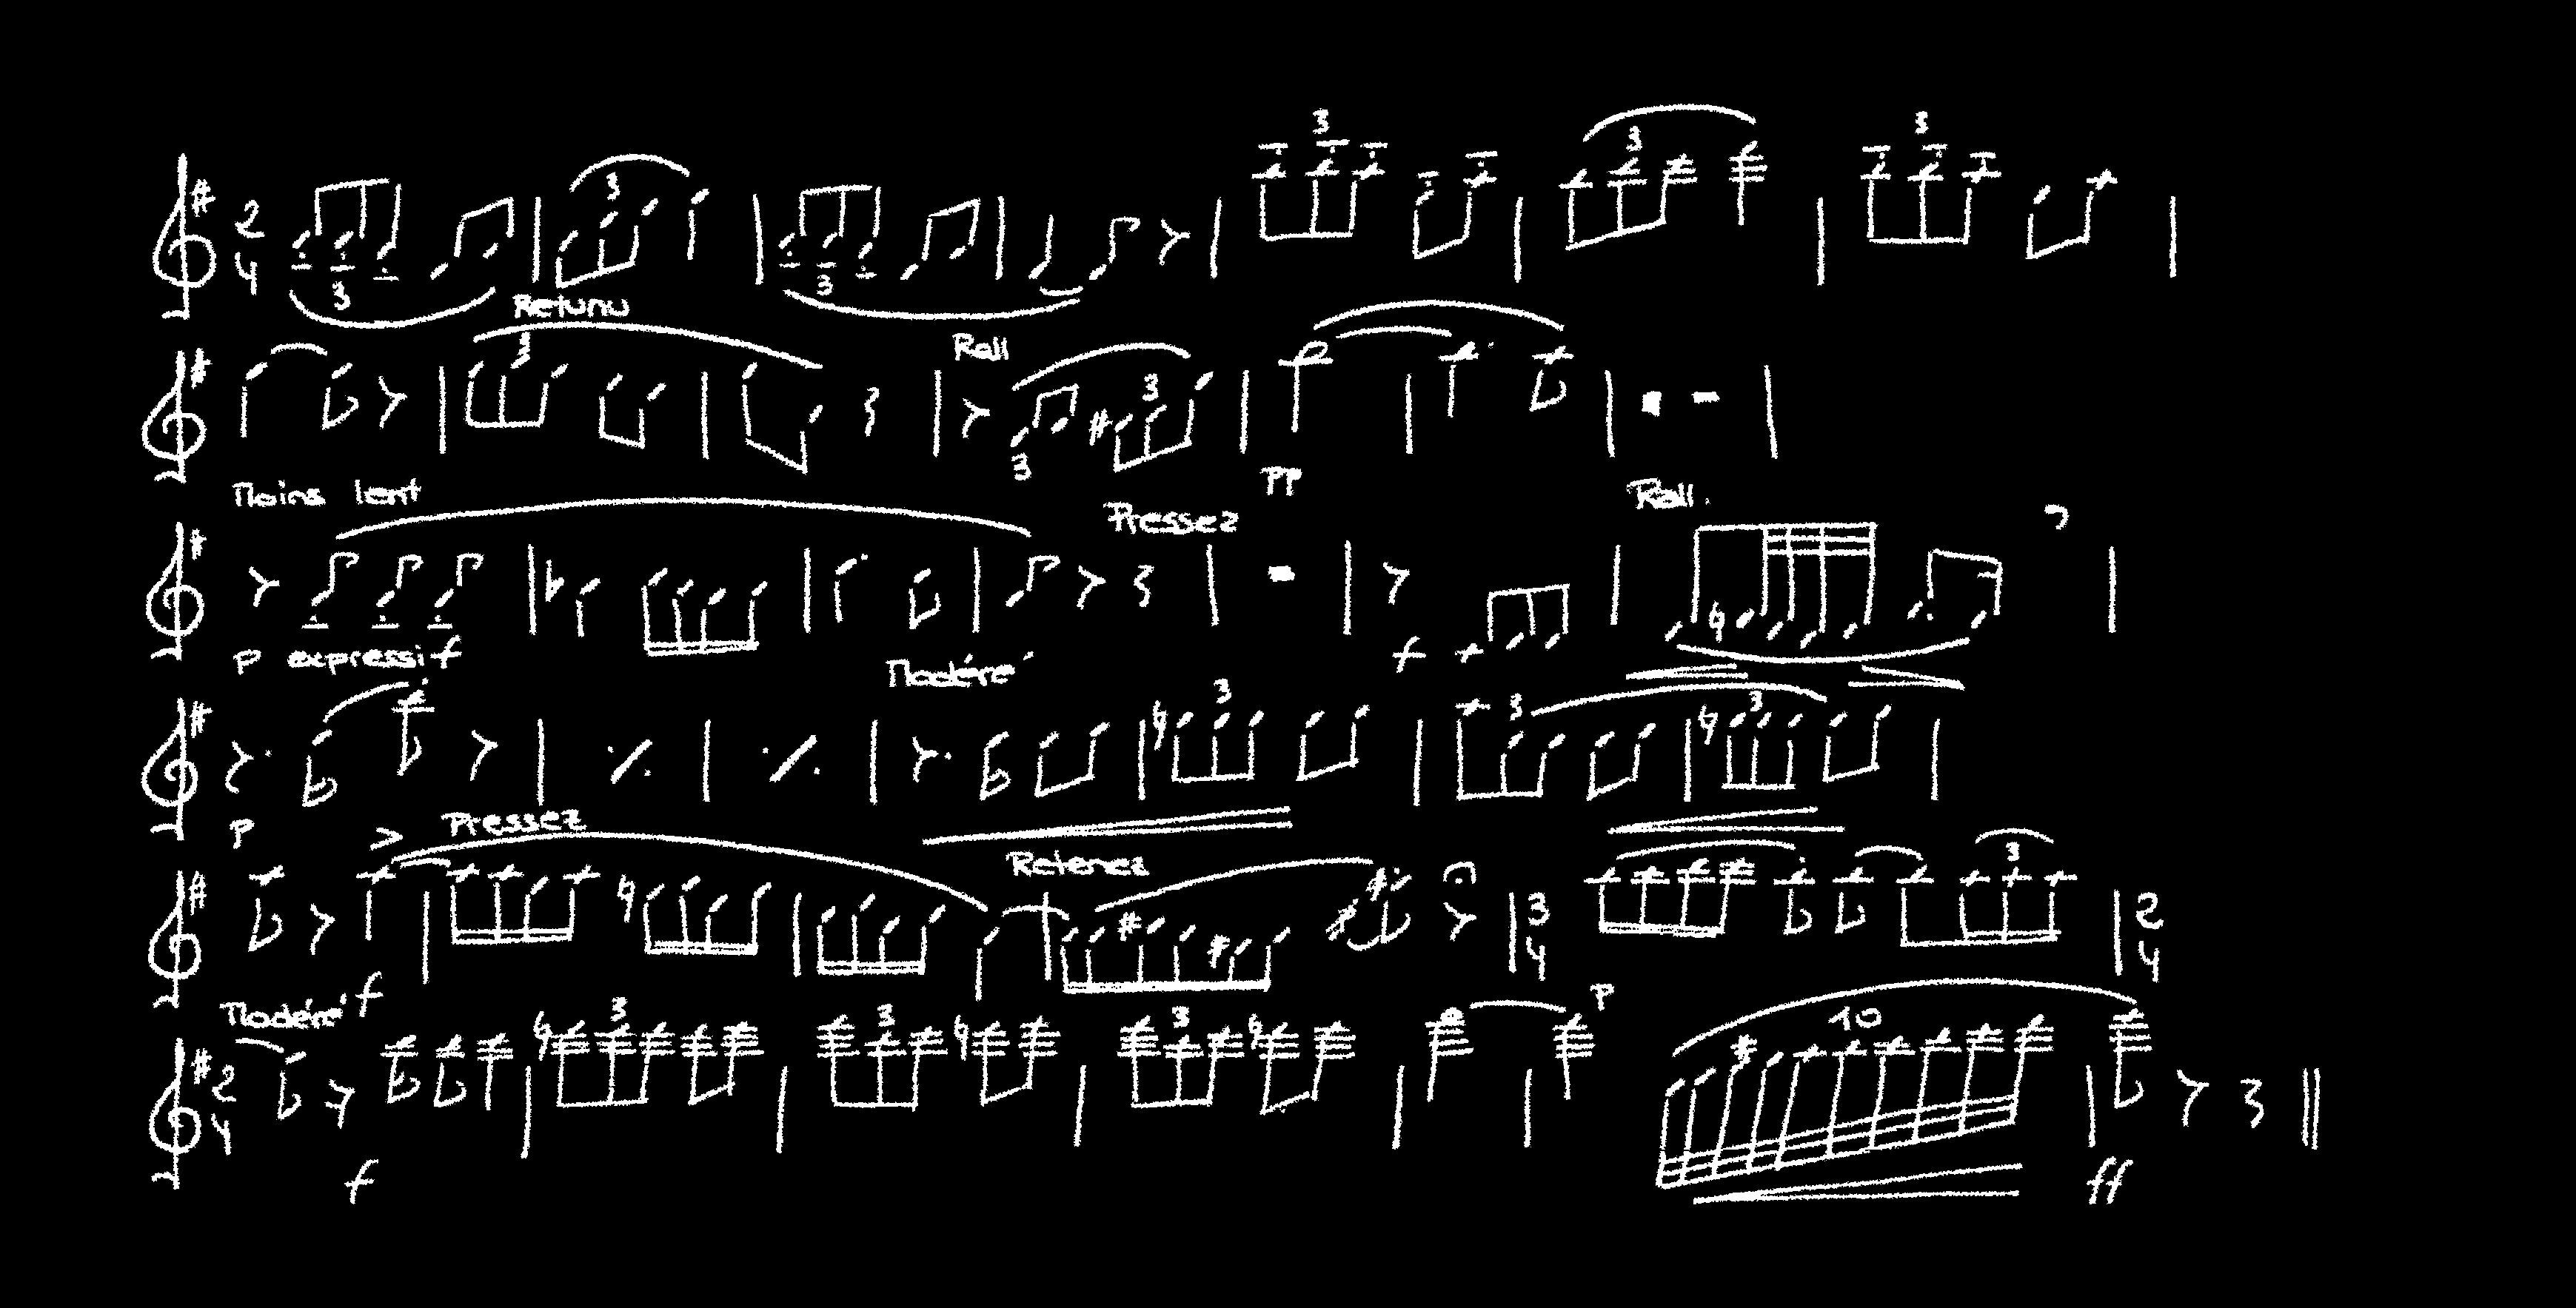 2
4
3 3 3 3 3 3
Retunu
Rall
3 3 3
Moins lent
pp
Pressez
Rall.
p expressif
f
Modéré
3 3 3
p
Pressez
Retenez
3
4
3
2
4
Modéré
f
p
2
4
3 3 3
10
f
ff